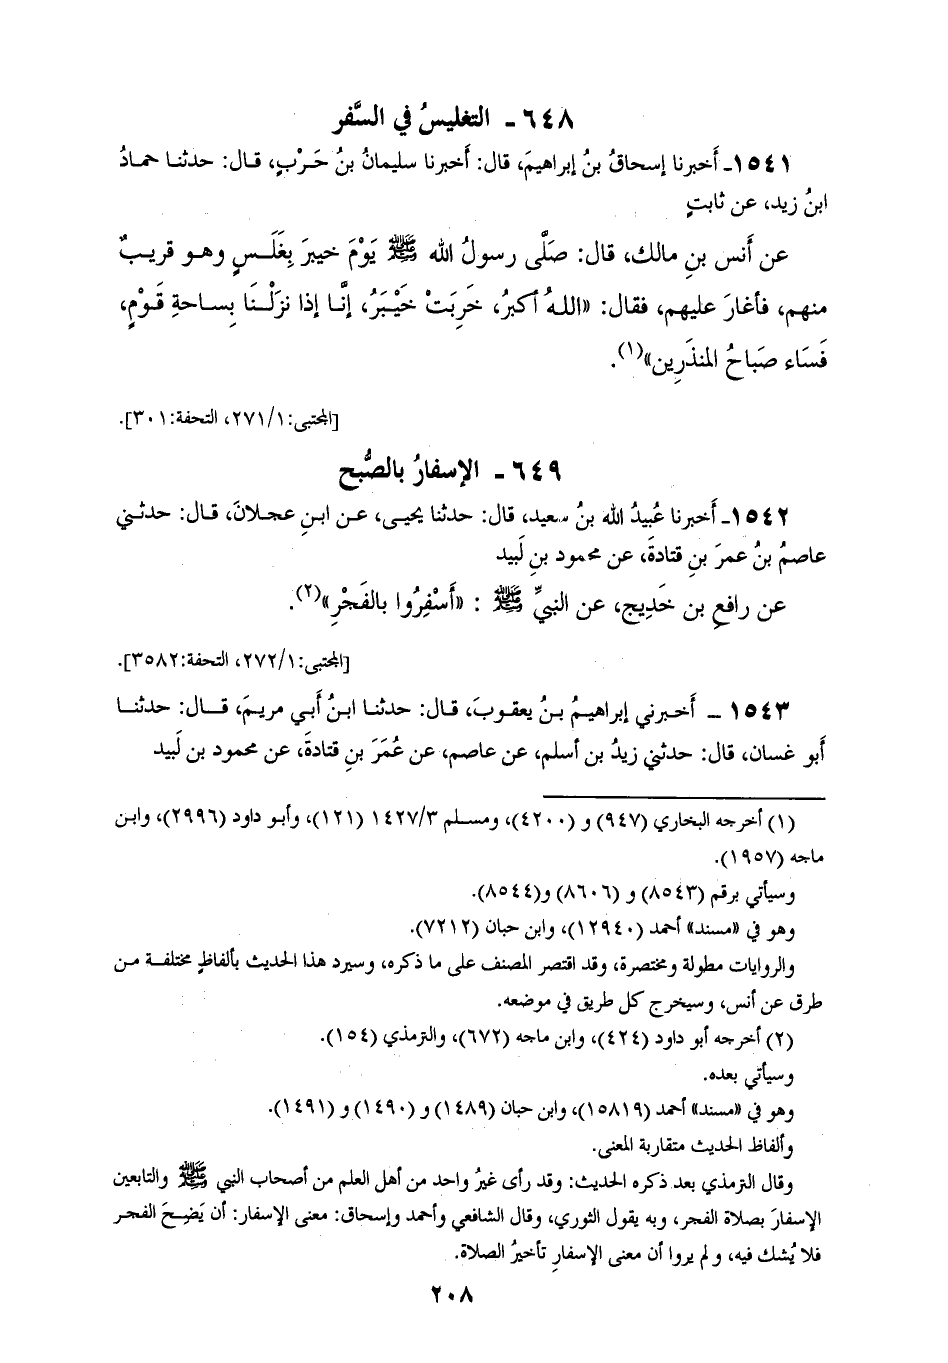 ٦٤٨ - التغليسُ في السَّفر
١٥٤١- أخبرنا إسحاقُ بنُ إبراهيمَ، قال: أخبرنا سليمانُ بنُ حَرْبٍ، قال: حدثنا حمادُ
ابنُ زيد، عن ثابتٍ
عن أَنس بنِ مالك، قال: صَلَّى رسولُ الله ﷺ يَوْمَ خيبرَ بِغَلَسٍ وهو قريبٌ
منهم، فأغارَ عليهم، فقال: «اللهُ أكبرُ، خَرِبَتْ خَيْبَرُ، إنَّا إذا نزَلْنَا بِساحةِ قَوْمٍ،
فَسَاء صَبَاحُ المنذَرِين»(١).
[المجتبى: ٢٧١/١، التحفة: ٣٠١].
٦٤٩ - الإسفارُ بالصُّبح
١٥٤٢- أخبرنا عُبيدُ الله بنُ سعيد، قال: حدثنا يحيى، عن ابنِ عجلانَ، قال: حدثني
عاصمُ بنُ عمرَ بنِ قتادةَ، عن محمود بنِ لَبيد
عن رافعِ بن خَدِيج، عن النبيِّ ﷺ : «أَسْفِرُوا بالفَجْرِ»(٢).
[المجتبى: ٢٧٢/١، التحفة: ٣٥٨٢].
١٥٤٣ - أخبرني إبراهيمُ بنُ يعقوبَ، قال: حدثنا ابنُ أبي مريمَ، قال: حدثنا
أبو غسان، قال: حدثني زيدُ بن أسلم، عن عاصم، عن عُمَرَ بنِ قتادةَ، عن محمود بن لَبيد
(١) أخرجه البخاري (٩٤٧) و (٤٢٠٠)، ومسلم ١٤٢٧/٣ (١٢١)، وأبو داود (٢٩٩٦)، وابن
ماجه (١٩٥٧).
وسيأتي برقم (٨٥٤٣) و (٨٦٠٦) و(٨٥٤٤).
وهو في «مسند» أحمد (١٢٩٤٠)، وابن حبان (٧٢١٢).
والروايات مطولة ومختصرة، وقد اقتصر المصنف على ما ذكره، وسيرد هذا الحديث بألفاظٍ مختلفة من
طرق عن أنس، وسيخرج كل طريق في موضعه.
(٢) أخرجه أبو داود (٤٢٤)، وابن ماجه (٦٧٢)، والترمذي (١٥٤).
وسيأتي بعده.
وهو في «مسند» أحمد (١٥٨١٩)، وابن حبان (١٤٨٩) و (١٤٩٠) و (١٤٩١).
وألفاظ الحديث متقاربة المعنى.
وقال الترمذي بعد ذكره الحديث: وقد رأى غيرُ واحد من أهل العلم من أصحاب النبي ﷺ والتابعين
الإسفارَ بصلاة الفجر، وبه يقول الثوري، وقال الشافعي وأحمد وإسحاق: معنى الإسفار: أن يَضِحَ الفجر
فلا يُشك فيه، ولم يروا أن معنى الإسفارِ تأخيرُ الصلاة.
٢٠٨